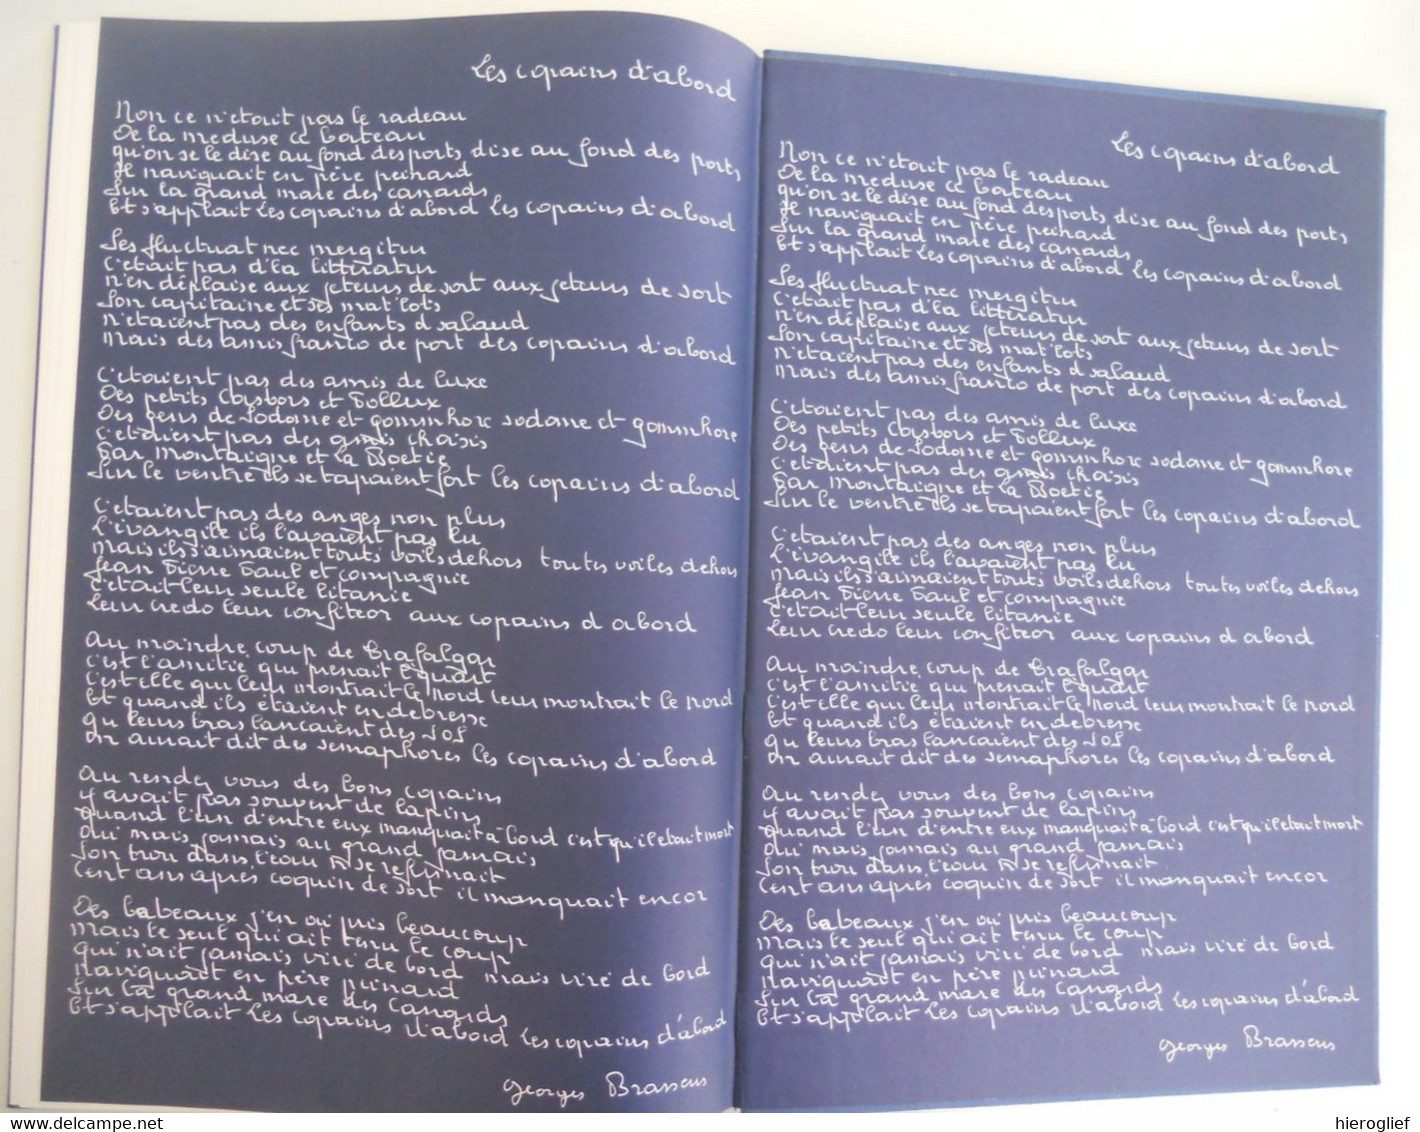 Les copains d'abord
Non ce n'etait pas le radeau
De la meduse ce bateau
qu'on se le dise au fond des ports dise au fond des ports
Je naviguait en père peinard
Sur la grand mare des canards
Et s'applait les copains d'abord les copains d'abord
Ses fluctuat nec mergitur
C'etait pas d'la litteratur
n'en déplaise aux jeteurs de sort aux jeteurs de sort
Son capitaine et ses mat'lots
n'etaient pas des enfants d salaud
Mais des amis franco de port des copains d'abord
C'etaient pas des amis de luxe
Des petits Castors et Pollux
Des gens de Sodome et gommhore sodome et gommhore
C'etaient pas des amis choisis
Par Montaigne et la Boetie
Sur le ventre ils se tapaient fort les copains d'abord
C'etaient pas des anges non plus
L'évangile ils l'avaient pas lu
Mais ils s'aimaient touts voils dehors toutes voiles dehors
Jean Pierre Paul et compagnie
C'etait leur seule litanie
Leur credo leur confiteor aux copains d abord
Au moindre coup de Trafalgar
C'est l'amitie qui prenait l'quart
C'est elle qui leur montrait le nord leur montrait le nord
Et quand ils étaient en detresse
Qu leurs bras lancaient des SOS
On aurait dit des semaphores les copains d'abord
Au rendez vous des bons copains
Y avait pas souvent de lapins
Quand l'un d'entre eux manquait à bord c'est qu'il etait mort
Oui mais jamais au grand jamais
Son trou dans l'eau n se refermait
Cent ans après coquin de sort il manquait encor
Des bateaux j'en ai pris beaucoup
Mais le seul qui ait tenu le coup
Qui n'ait jamais viré de bord mais viré de bord
Naviguait en père peinard
Sur la grand mare des canards
Et s'applait les copains d'abord les copains d'abord
Georges Brassens
Les copains d'abord
Non ce n'etait pas le radeau
De la meduse ce bateau
qu'on se le dise au fond des ports dise au fond des ports
Je naviguait en père peinard
Sur la grand mare des canards
Et s'applait les copains d'abord les copains d'abord
Ses fluctuat nec mergitur
C'etait pas d'la litteratur
n'en déplaise aux jeteurs de sort aux jeteurs de sort
Son capitaine et ses mat'lots
n'etaient pas des enfants d salaud
Mais des amis franco de port des copains d'abord
C'etaient pas des amis de luxe
Des petits Castors et Pollux
Des gens de Sodome et gommhore sodome et gommhore
C'etaient pas des amis choisis
Par Montaigne et la Boetie
Sur le ventre ils se tapaient fort les copains d'abord
C'etaient pas des anges non plus
L'évangile ils l'avaient pas lu
Mais ils s'aimaient touts voils dehors toutes voiles dehors
Jean Pierre Paul et compagnie
C'etait leur seule litanie
Leur credo leur confiteor aux copains d abord
Au moindre coup de Trafalgar
C'est l'amitie qui prenait l'quart
C'est elle qui leur montrait le nord leur montrait le nord
Et quand ils étaient en detresse
Qu leurs bras lancaient des SOS
On aurait dit des semaphores les copains d'abord
Au rendez vous des bons copains
Y avait pas souvent de lapins
Quand l'un d'entre eux manquait à bord c'est qu'il etait mort
Oui mais jamais au grand jamais
Son trou dans l'eau n se refermait
Cent ans après coquin de sort il manquait encor
Des bateaux j'en ai pris beaucoup
Mais le seul qui ait tenu le coup
Qui n'ait jamais viré de bord mais viré de bord
Naviguait en père peinard
Sur la grand mare des canards
Et s'applait les copains d'abord les copains d'abord
Georges Brassens
hieroglief